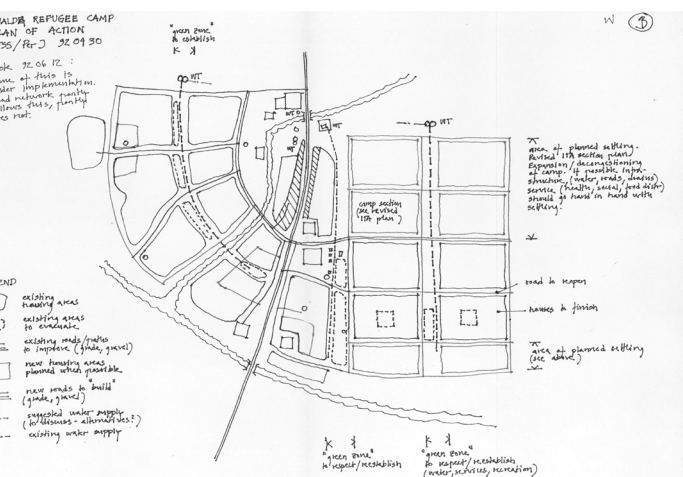 REFUGEE CAMP
PLAN OF ACTION
92 09 30
92 06 12 :
of this is
implementation.
road network partly
follows this, partly
does not.
"green zone"
to establish
W
3
WT
WT
WT
WT
WT
camp section
(see revised
ITA plan)
area of planned settling.
Revised ITA section plan,
Expansion / decongestioning
of camp. If possible infra-
structure, (water, roads, drains)
service (health, social, food distr)
should go hand in hand with
settling.
road to reopen
houses to finish
area of planned settling
(see above)
LEGEND
existing
housing areas
existing areas
to evacuate
existing roads/paths
to improve (grade, gravel)
new housing areas
planned when possible
new roads to "build"
(grade, gravel)
suggested water supply
(to discuss - alternatives?)
existing water supply
"green zone"
to respect/reestablish
"green zone"
to respect/reestablish
(water, services, recreation)